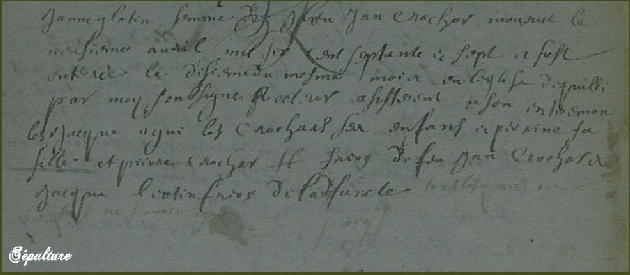 Janne glotin femme de Jan Crochar mourut le
neufieme avril mil six cent septante et sept et fust
enterée le disieme du mesme mois en leglise de quilli
par moy soubsigne Recteur assisterent a son enteremen
les Jacque et gui les Crochars ses enfans et perrine sa
fille et pierre Crochar frere de feu Jan Crochar
Jacque frere de la
Sépulture